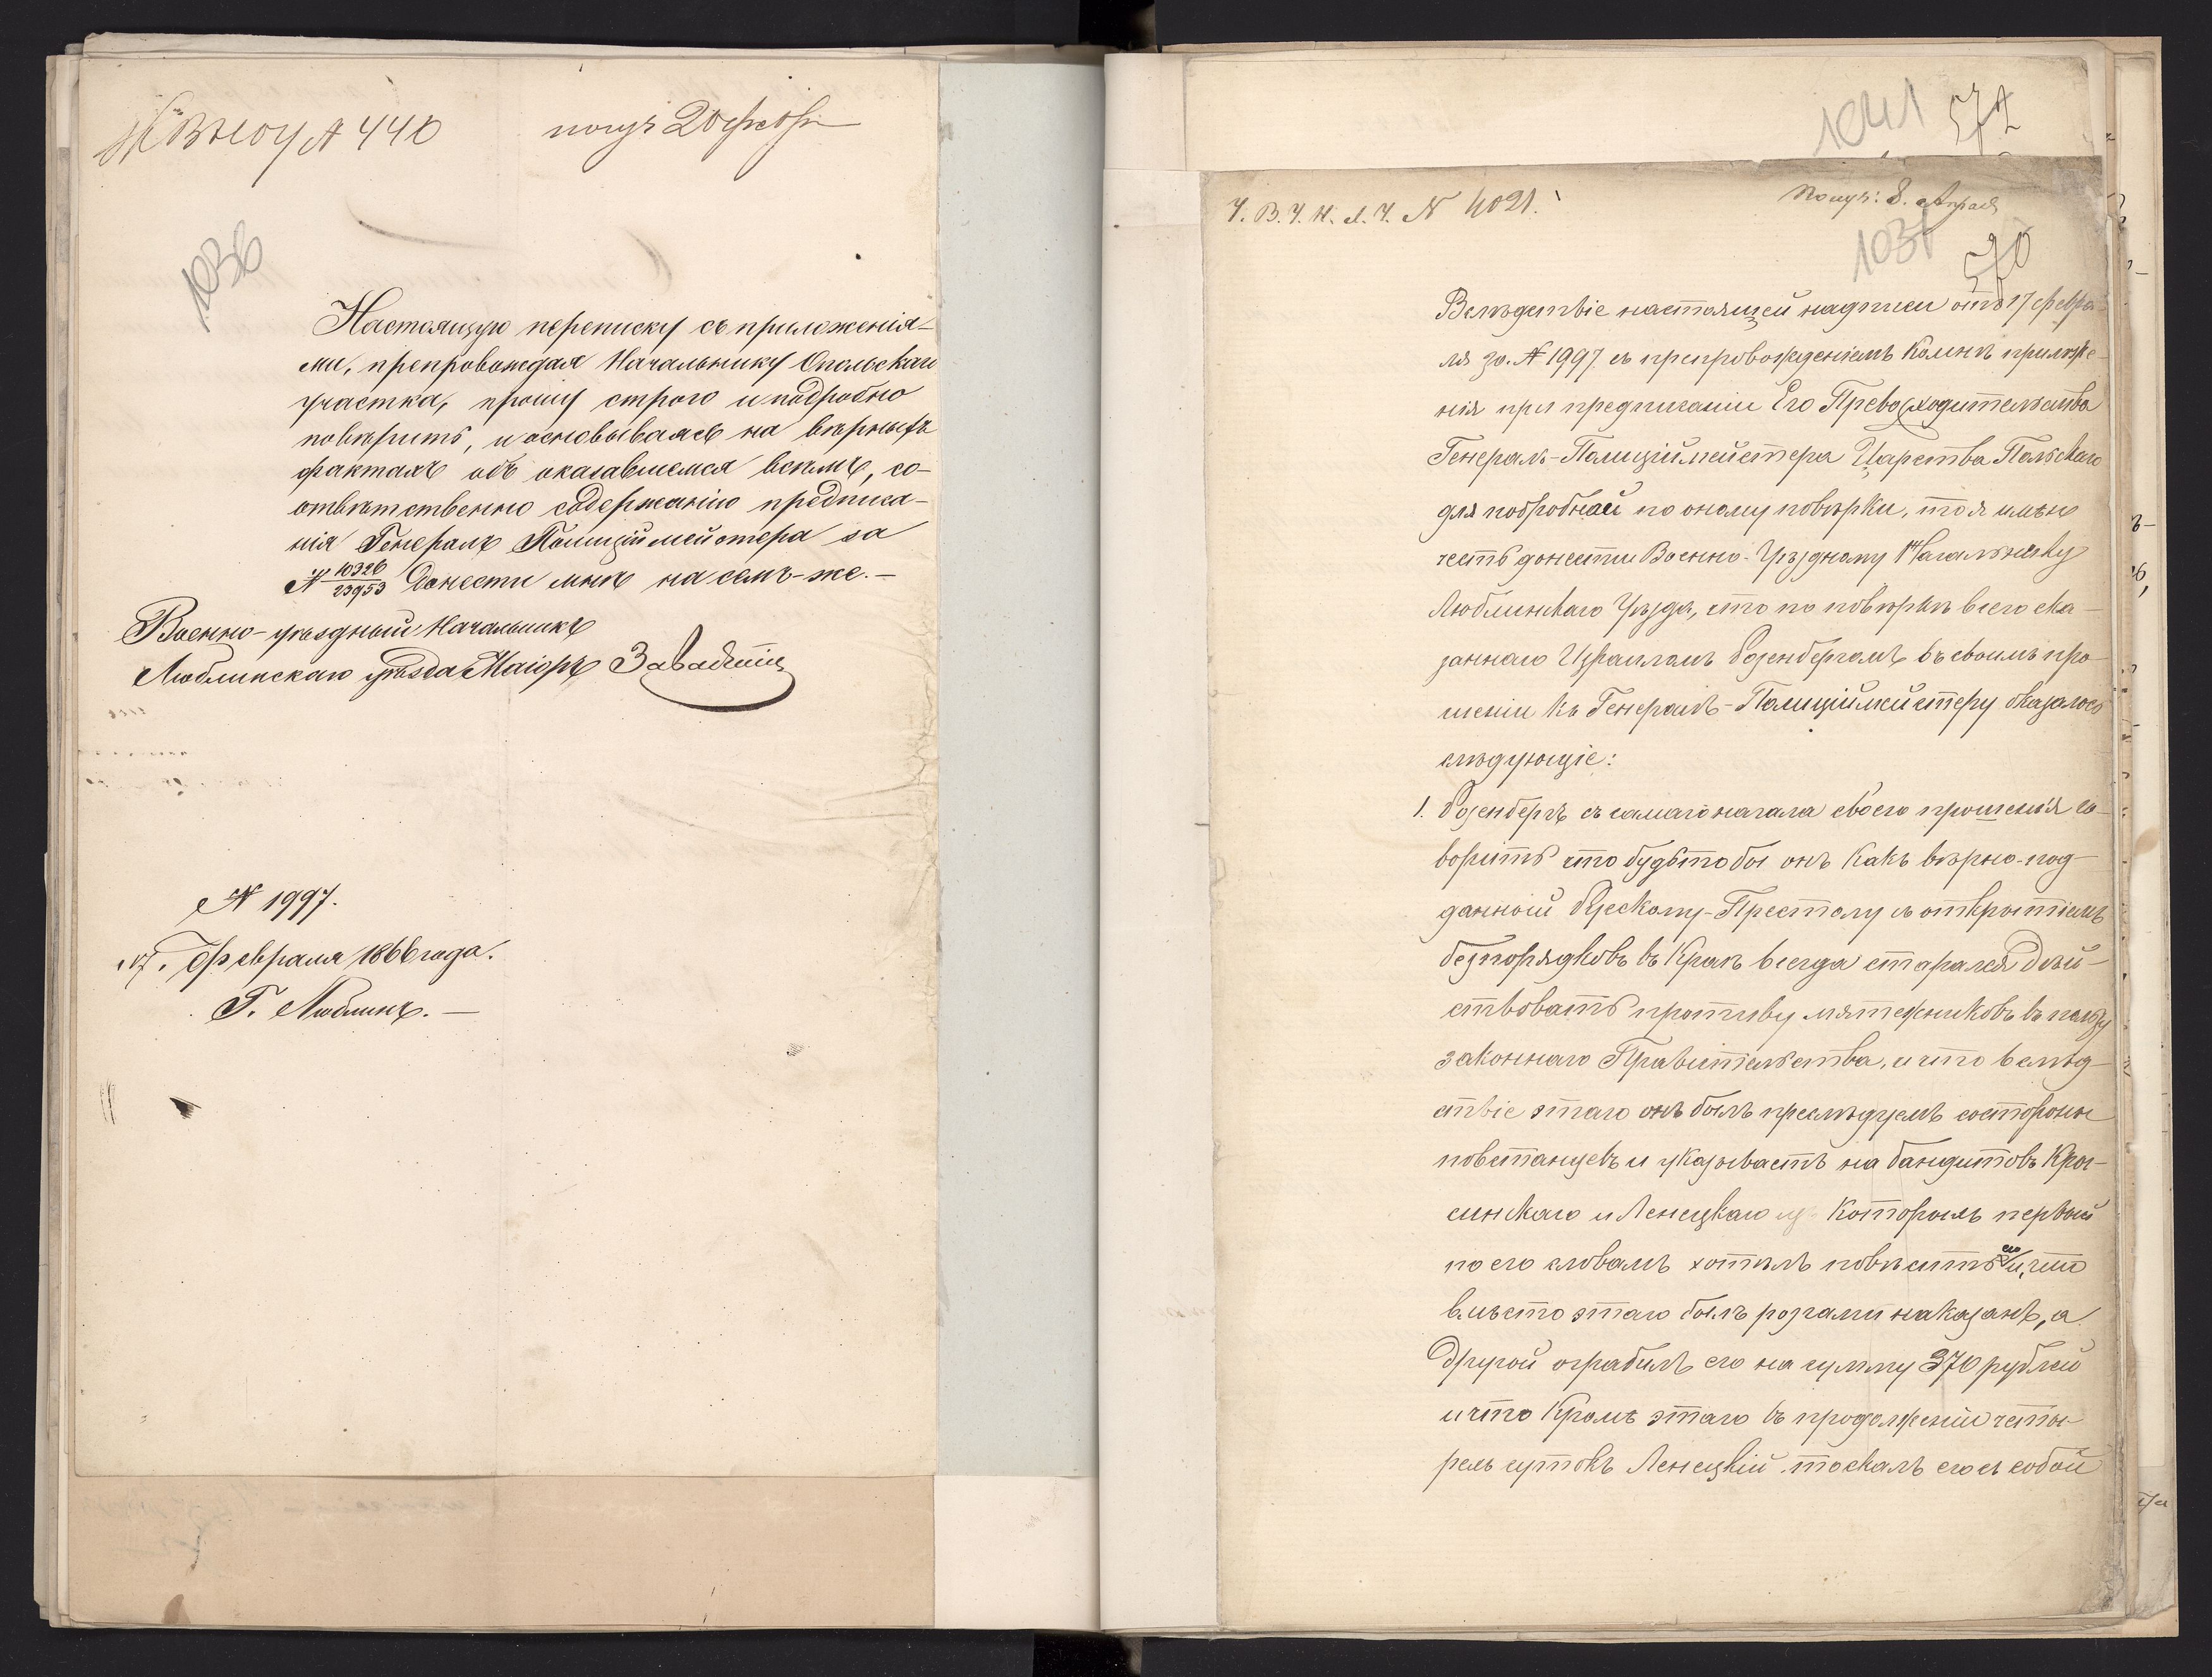 № 440
получ 20 февр
1036
Настоящую переписку съ приложенія-
ми, препровождая Начальнику Опольскаго
участка, прошу строго и подробно
повѣрить, и основываясь на вѣрныхъ
фактахъ объ оказавшемся всемъ, со-
отвѣтственно содержанію предписа-
нія Генералъ Полицiймейстера за
№ 10326/23953 донести мнѣ на семъ-же.-
Военно-уѣздный Начальникъ
Люблинскаго уѣзда Маіоръ
№ 1997.
"17" Февраля 1866 года.
Г. Люблинъ.-
1041 572
У. В. У. Н. Л. У. № 4021.
Получ: 8. Апраля
1037
570
Вслѣдствіе настоящей надписи отъ 17 февра-
ля за № 1997 съ препровожденіемъ ко мнѣ приложе-
нія при предписаніи Его Превосходительства
Генералъ-Полиціймейстера Царства Польскаго
для подробной по оному повѣрки, то я имѣю
честь донести Военно-Уѣздному Начальнику
Люблинскаго Уѣзда, что по повѣркѣ всего ска-
заннаго Израилемъ Розенбергомъ въ своимъ про-
шеніи къ Генералъ-Полиціймейстеру оказалось
слѣдующіе:
1. Розенбергъ съ самаго начала своего прошенія го-
воритъ что будьто бы онъ какъ вѣрно-под-
данный Рускому-Престолу съ открытіемъ
безпорядковъ въ Краѣ всегда старался дѣй-
ствовать противу мятежниковъ въ пользу
законнаго Правительства, и что вслѣд-
ствіе этаго онъ былъ преслѣдуемъ со стороны
повстанцевъ и указываетъ на бандитовъ Кры-
синскаго и Ленецкаго изъ которыхъ первый
по его словамъ хотѣлъ повѣсить его и, что
вмѣсто этаго былъ розгами наказанъ, а
другой ограбилъ его на сумму 370 рублей
и что кромѣ этаго въ продолженіи четы-
рехъ сутокъ Ленецкій таскалъ его съ собой